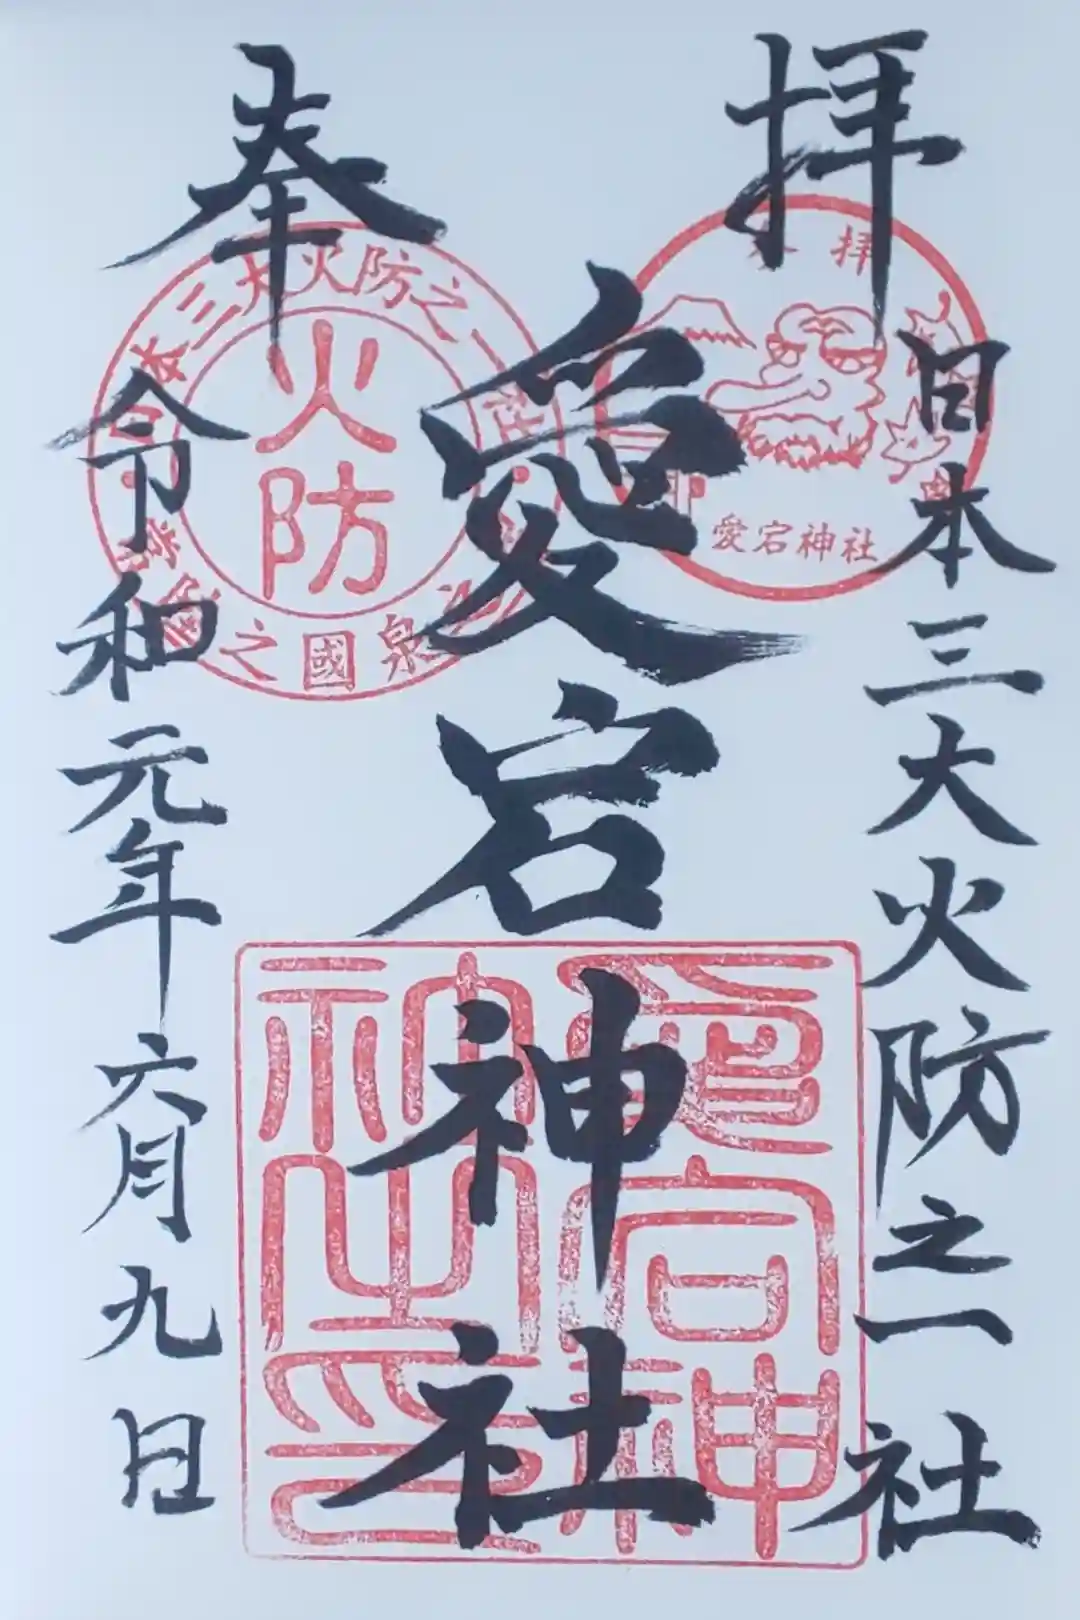 奉拝
日本三大火防之一社
愛宕神社
令和元年六月九日
拝
愛宕神社
本三大火防之一
火防
泉國之
愛宕神社之印